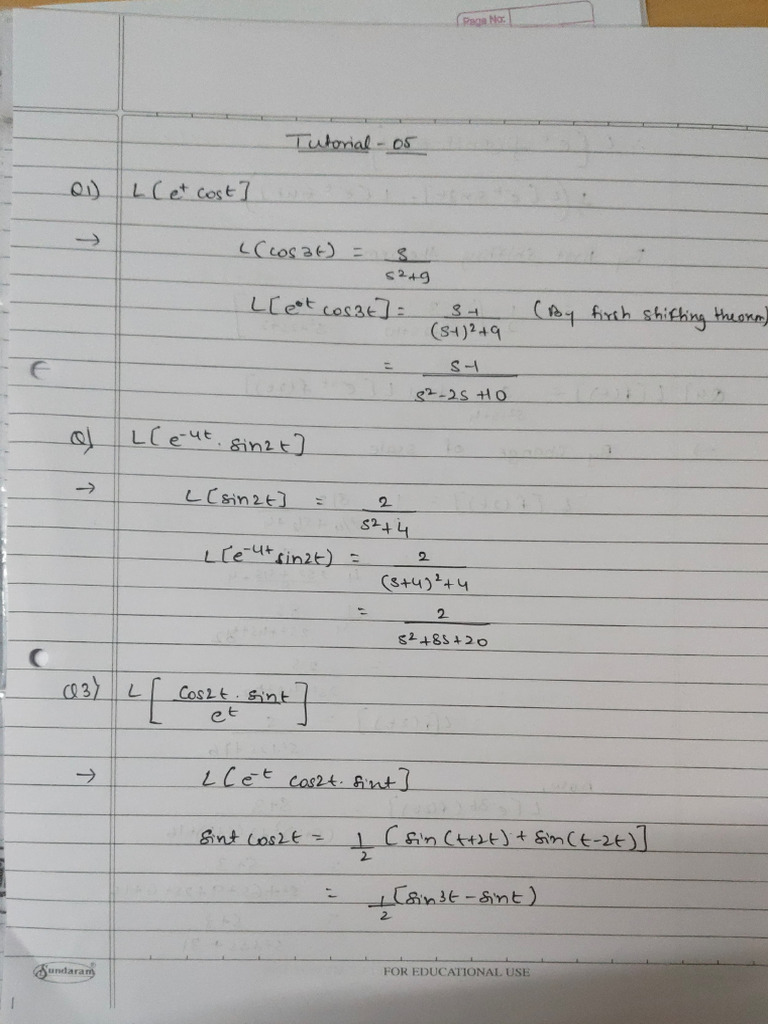 Page No:
Tutorial - 05
Q1) L[e^t cost]
→ L(cos3t) = s/(s²+9)
L[e^t cos3t] = (s-1)/((s-1)²+9) (By first shifting theorem)
= (s-1)/(s²-2s+10)
Q) L[e^-4t . sin2t]
→ L[sin2t] = 2/(s²+4)
L[e^-4t sin2t) = 2/((s+4)²+4)
= 2/(s²+8s+20)
Q3) L[(cos2t . sint)/e^t]
→ L[e^-t cos2t . sint]
sint cos2t = 1/2 [sin(t+2t) + sin(t-2t)]
= 1/2 [sin3t - sint)
Sundaram
FOR EDUCATIONAL USE